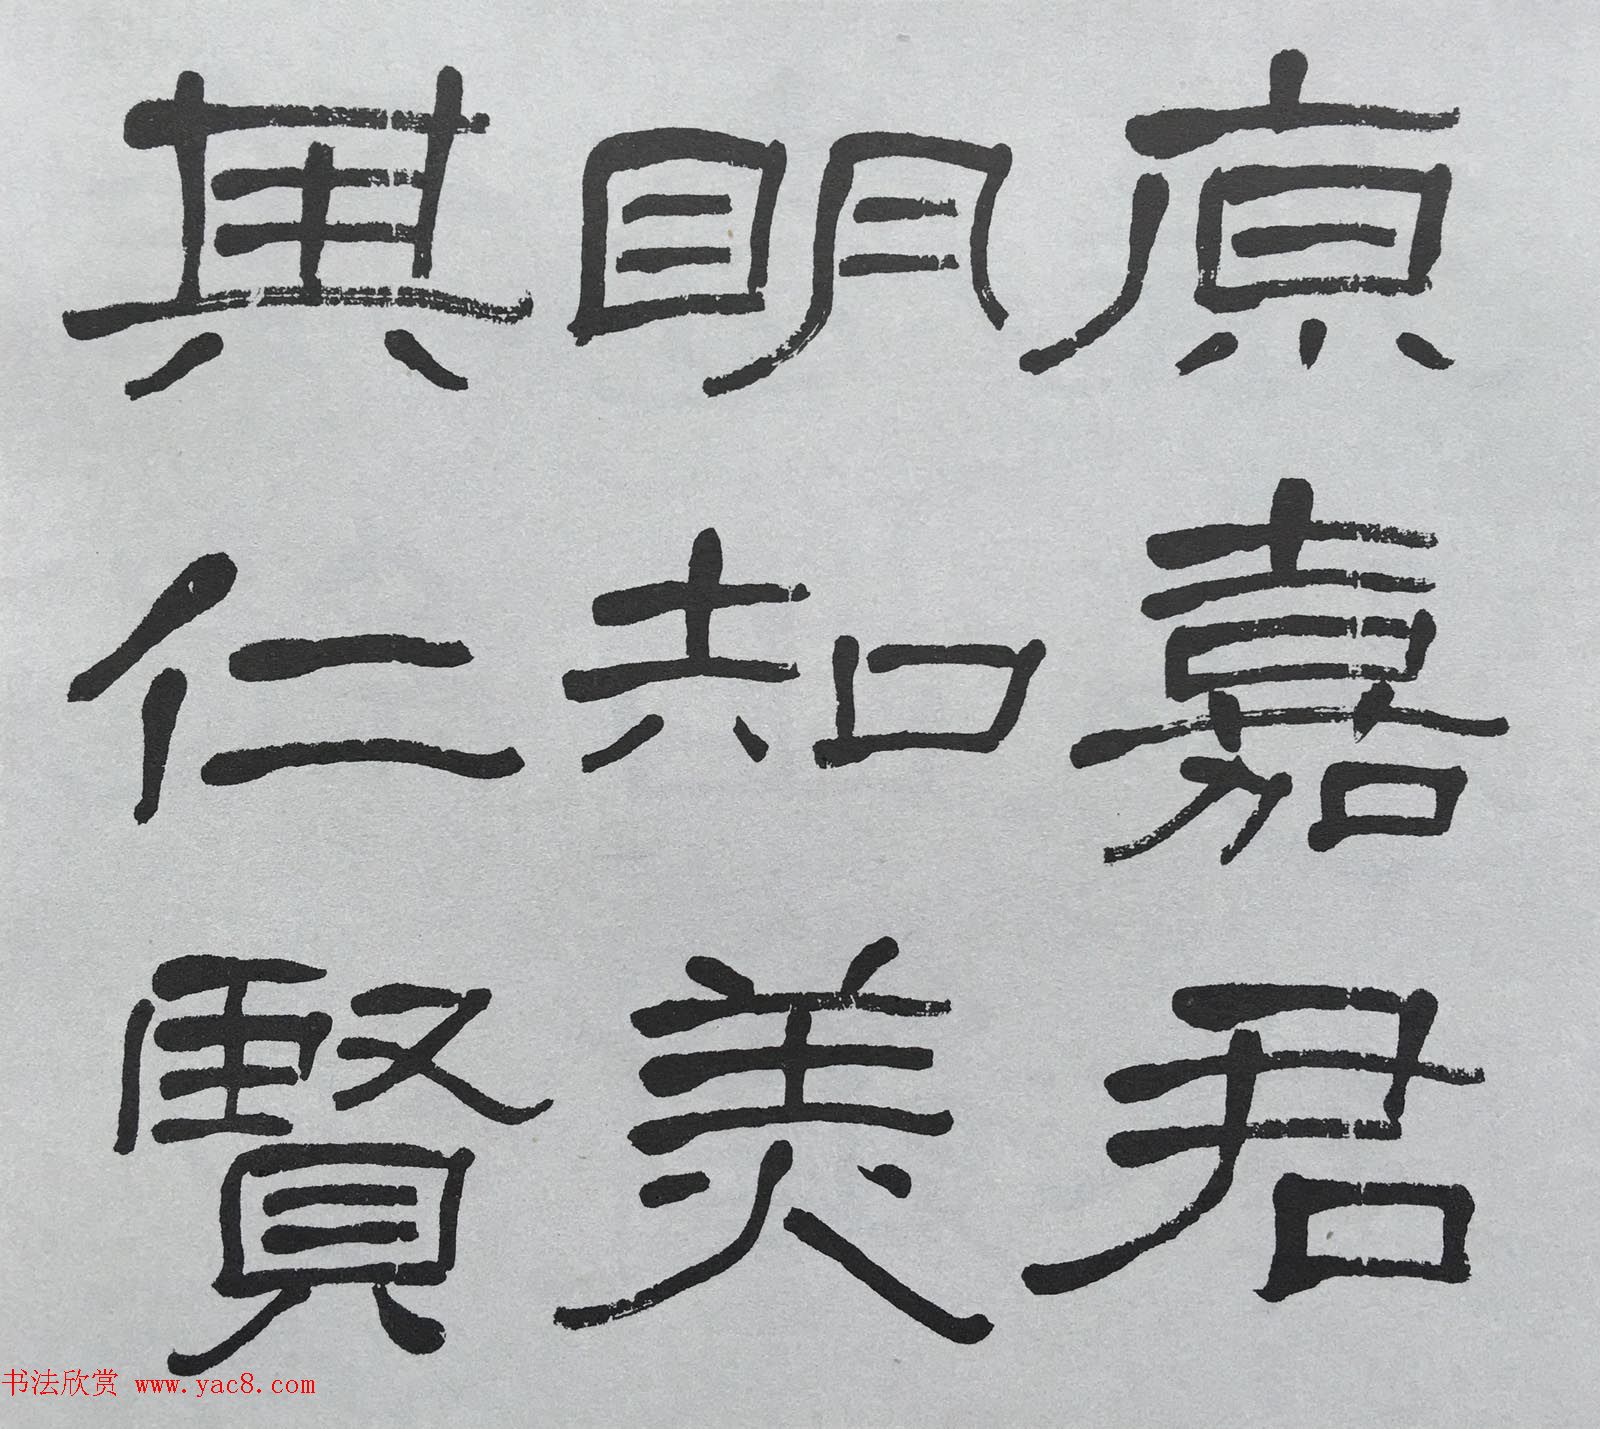 原嘉君
明知美
其仁賢
书法欣赏 www.yac8.com